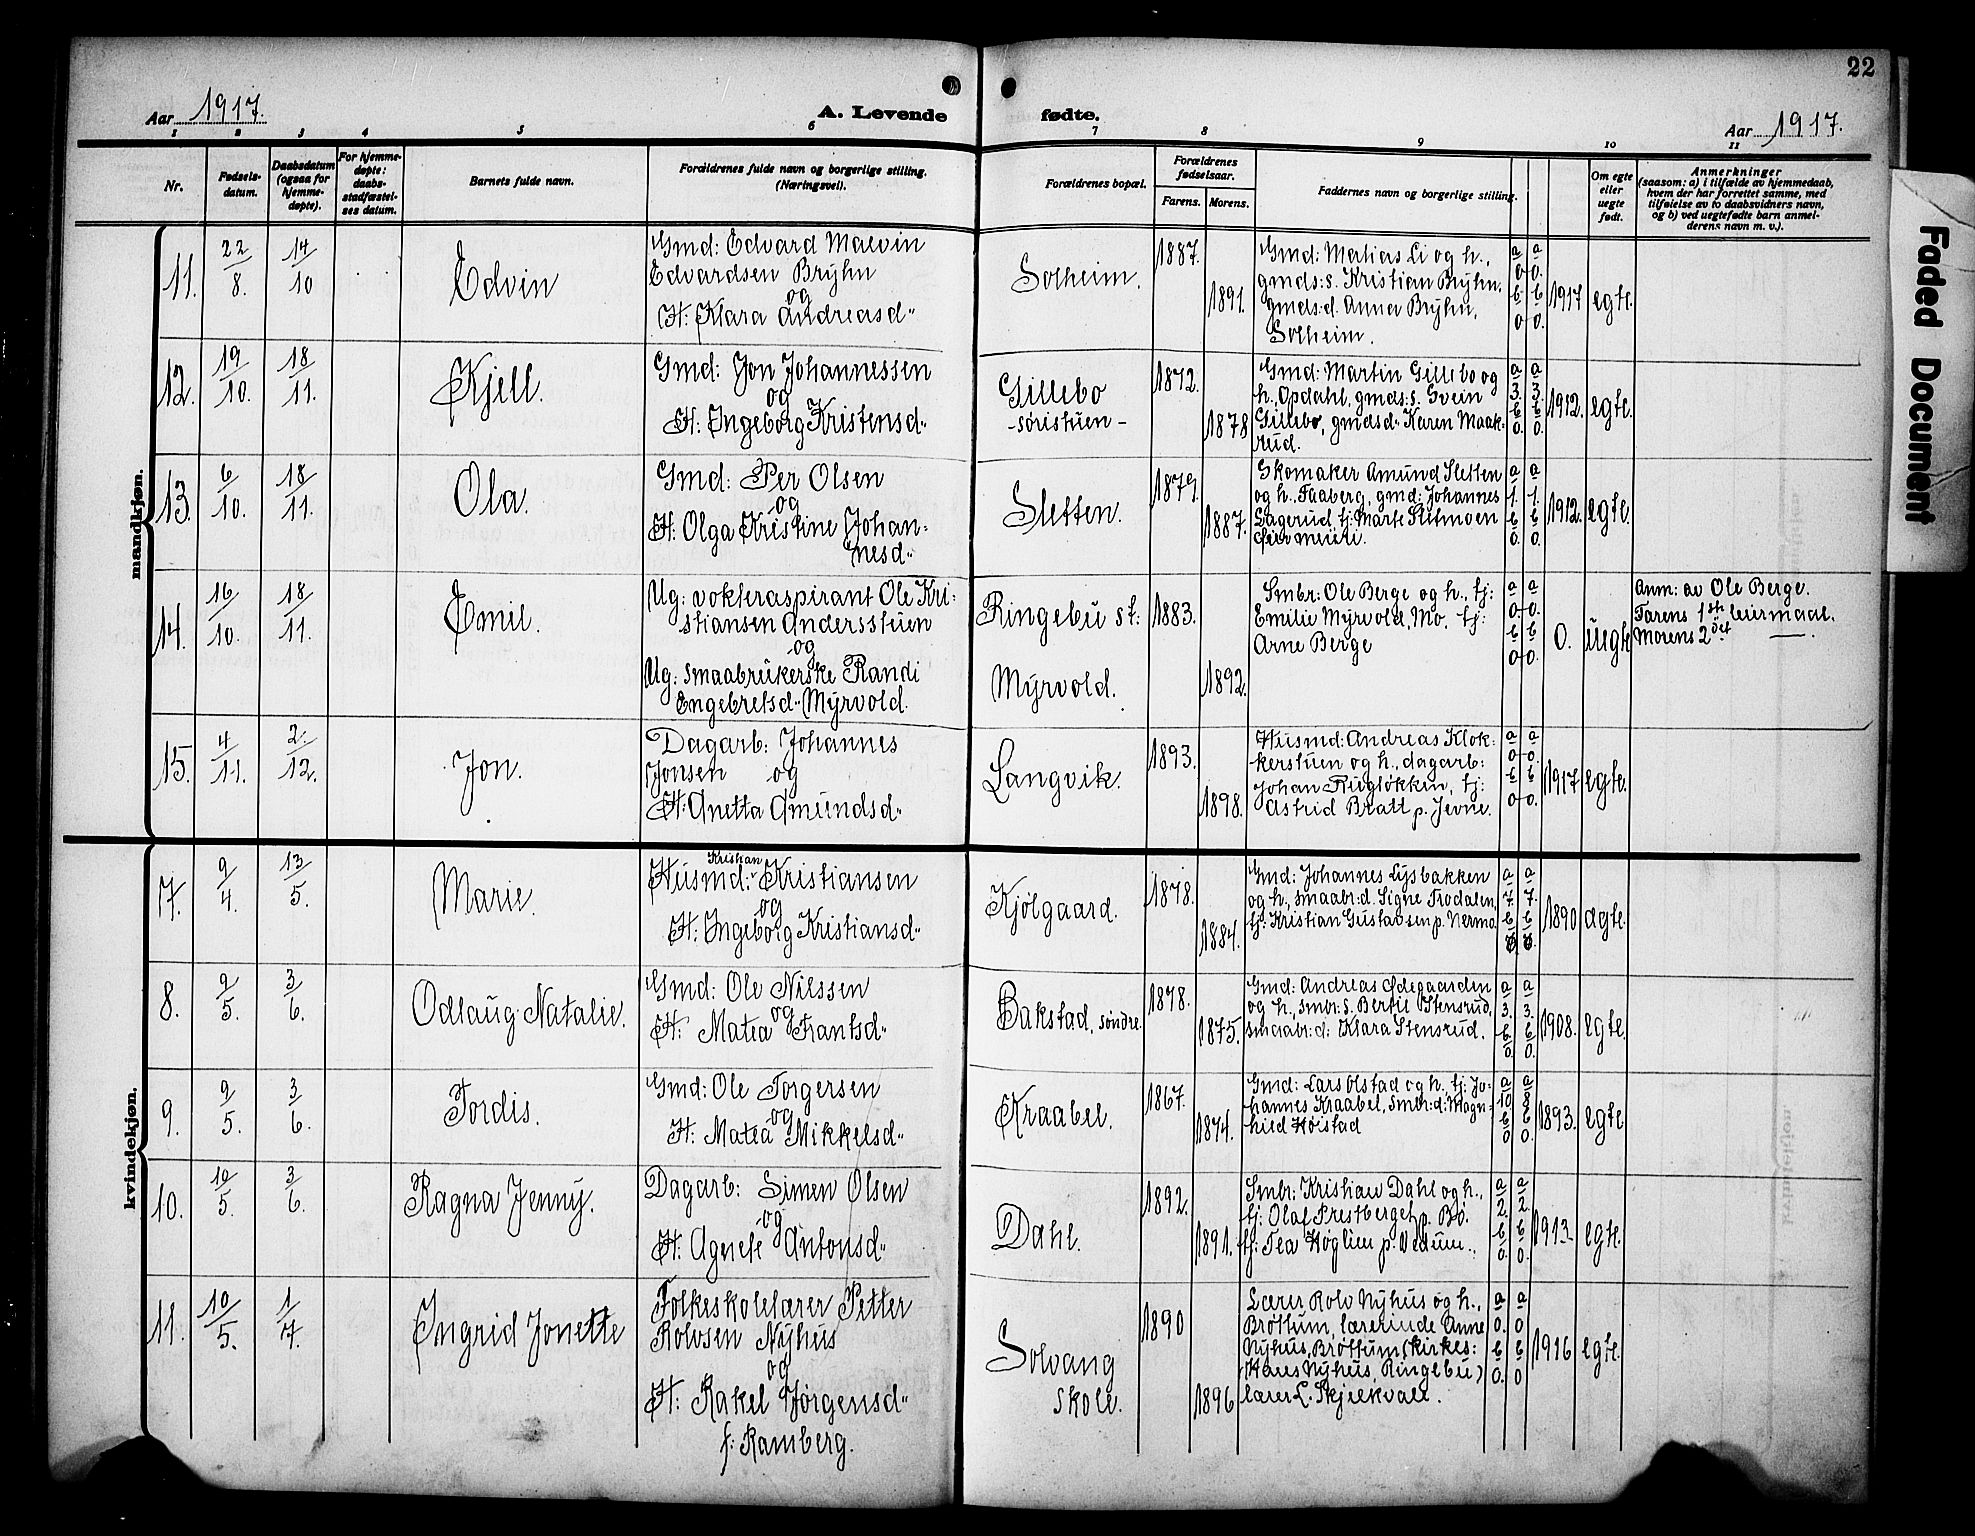 22
Aar 1917.
A. Levende fødte.
Aar 1917.
1 2 3 4 5 6 7 8 9 10 11
Nr.
Fødsels-
datum.
Daabsdatum
(ogsaa for
hjemme-
døpte).
For hjemme-
døpte:
daabs-
stadfæstel-
ses datum.
Barnets fulde navn.
Forældrenes fulde navn og borgerlige stilling.
(Næringsvei).
Forældrenes bopæl.
Forældrenes
fødselsaar.
Farens. Morens.
Faddernes navn og borgerlige stilling.
Om egte
eller
uegte
født.
Anmerkninger
(saasom: a) i tilfælde av hjemmedaab,
hvem der har forrettet samme, med
tilføielse av to daabsvidners navn,
og b) ved uegtefødte barn anmel-
derens navn m. v.).
Faded Document
mandkjøn.
11. 22/8. 14/10 Edvin
Gmd: Edvard Malvin
Edvardsen Bryhn
og
H: Klara Andreasd.
Solheim.
1887.
1891.
Gmd: Mathias Li og h.,
gmds: s. Kristian Bryhn,
gmds: d. Anna Bryhn,
Solheim.
a/0 b/0 a/0. b/0.
1917 egte.
12. 19/10. 18/11. Kjell.
Gmd: Jon Johannessen
og
H: Ingeborg Kristensd.
Gillebo
-søristuen-
1872.
1878
Gmd: Martin Gillebo og
h., Opdahl, gmds: s. Svein
Gillebo, gmdsd. Karen Maak-
rud.
a/3. b/0. a/3. b/0.
1912. egte.
13. 6/10. 18/11. Ola.
Gmd: Per Olsen
og
H: Olga Kristine Johan-
nesd.
Sletten.
1879.
1887.
Skomaker Amund Sletten
og h., Faaberg, gmd: Johannes
Lagerud, tj: Marte Sletmoen
a/1. b/0. a/1. b/0.
1912. egte.
14. 16/10. 18/11. Emil.
Ug: vokteraspirant Ole Kri-
stiansen Andersstuen
og
Ug: smaabrukerske Randi
Engebretsd. Myrvold.
Ringebu st.
Myrvold.
1883.
1892.
Smbr: Ole Berge og h., tj:
Emilie Myrvold, Mo, tj:
Arne Berge
a/0 b/0 a/0. b/0.
0. uegte
Anm: av Ole Berge.
Farens 1ste leirmaal.
Morens 2det —
15. 4/11. 2./12. Jon.
Dagarb: Johannes
Jonsen og
H: Anetta Amundsd.
Langvik.
1893.
1898.
Husmd: Andreas Klok-
kerstuen og h., dagarb:
Johan Rugløkken, tj:
Astrid Bratt p. Jevne.
a/0 b/0 a/0. b/0.
1917 egte.
kvindekjøn.
7. 9/4. 13/5. Marie.
Kristian
Husmd: Kristiansen
og
H: Ingeborg Kristiansd.
Kjølgaard.
1878.
1884.
Gmd: Johannes Lysbakken
og h., smaabr: d. Signe Frodalen,
tj: Kristian Gustavsen p. Nermo.
1890 ægte.
8. 9/5. 3/6. Odlaug Natalie.
Gmd: Ole Nilssen
og
H: Matea Frantsd.
Bakstad, søndre.
1878.
1875.
Gmd: Andreas Ødegaarden
og h., smbr: s. Bertil Stensrud,
smaabr: d: Klara Stensrud.
a/3. b/0 a/3. b/0.
1908. egte
9. 9/5. 3/6. Tordis.
Gmd: Ole Torgersen
og
H: Matea Mikkelsd.
Kraabøl.
1867.
1874.
Gmd: Lars Olstad og h. tj: Jo-
hannes Kraabøl, smbr: d: Magn-
hild Høistad
a/10 b/0 a/8 b/0.
1893. egte
10. 10/5. 3/6. Ragna Jenny.
Dagarb: Simen Olsen
og
H: Agnete Antonsd.
Dahl.
1892.
1891.
Smbr: Kristian Dahl og h.,
tj: Olaf Prestberget p. Bø.
tj: Tea Høglien p. Vedum.
a/2. b/0. a/2 b/0.
1913 egte.
11. 10/5. 1/7. Ingrid Jonette
Folkeskolelærer Petter
Rolvsen Nyhus
og
H: Rakel Jørgensd.
f: Ramberg.
Solvang
skole.
1890
1896
Lærer Rolv Nyhus og h.,
Brøttum, lærerinde Anne
Nyhus, Brøttum (kirkes:
Hans Nyhus, Ringebu)
lærer L. Skjeckvale.
a/0. b/0. a/0 b/0
1916 egte.